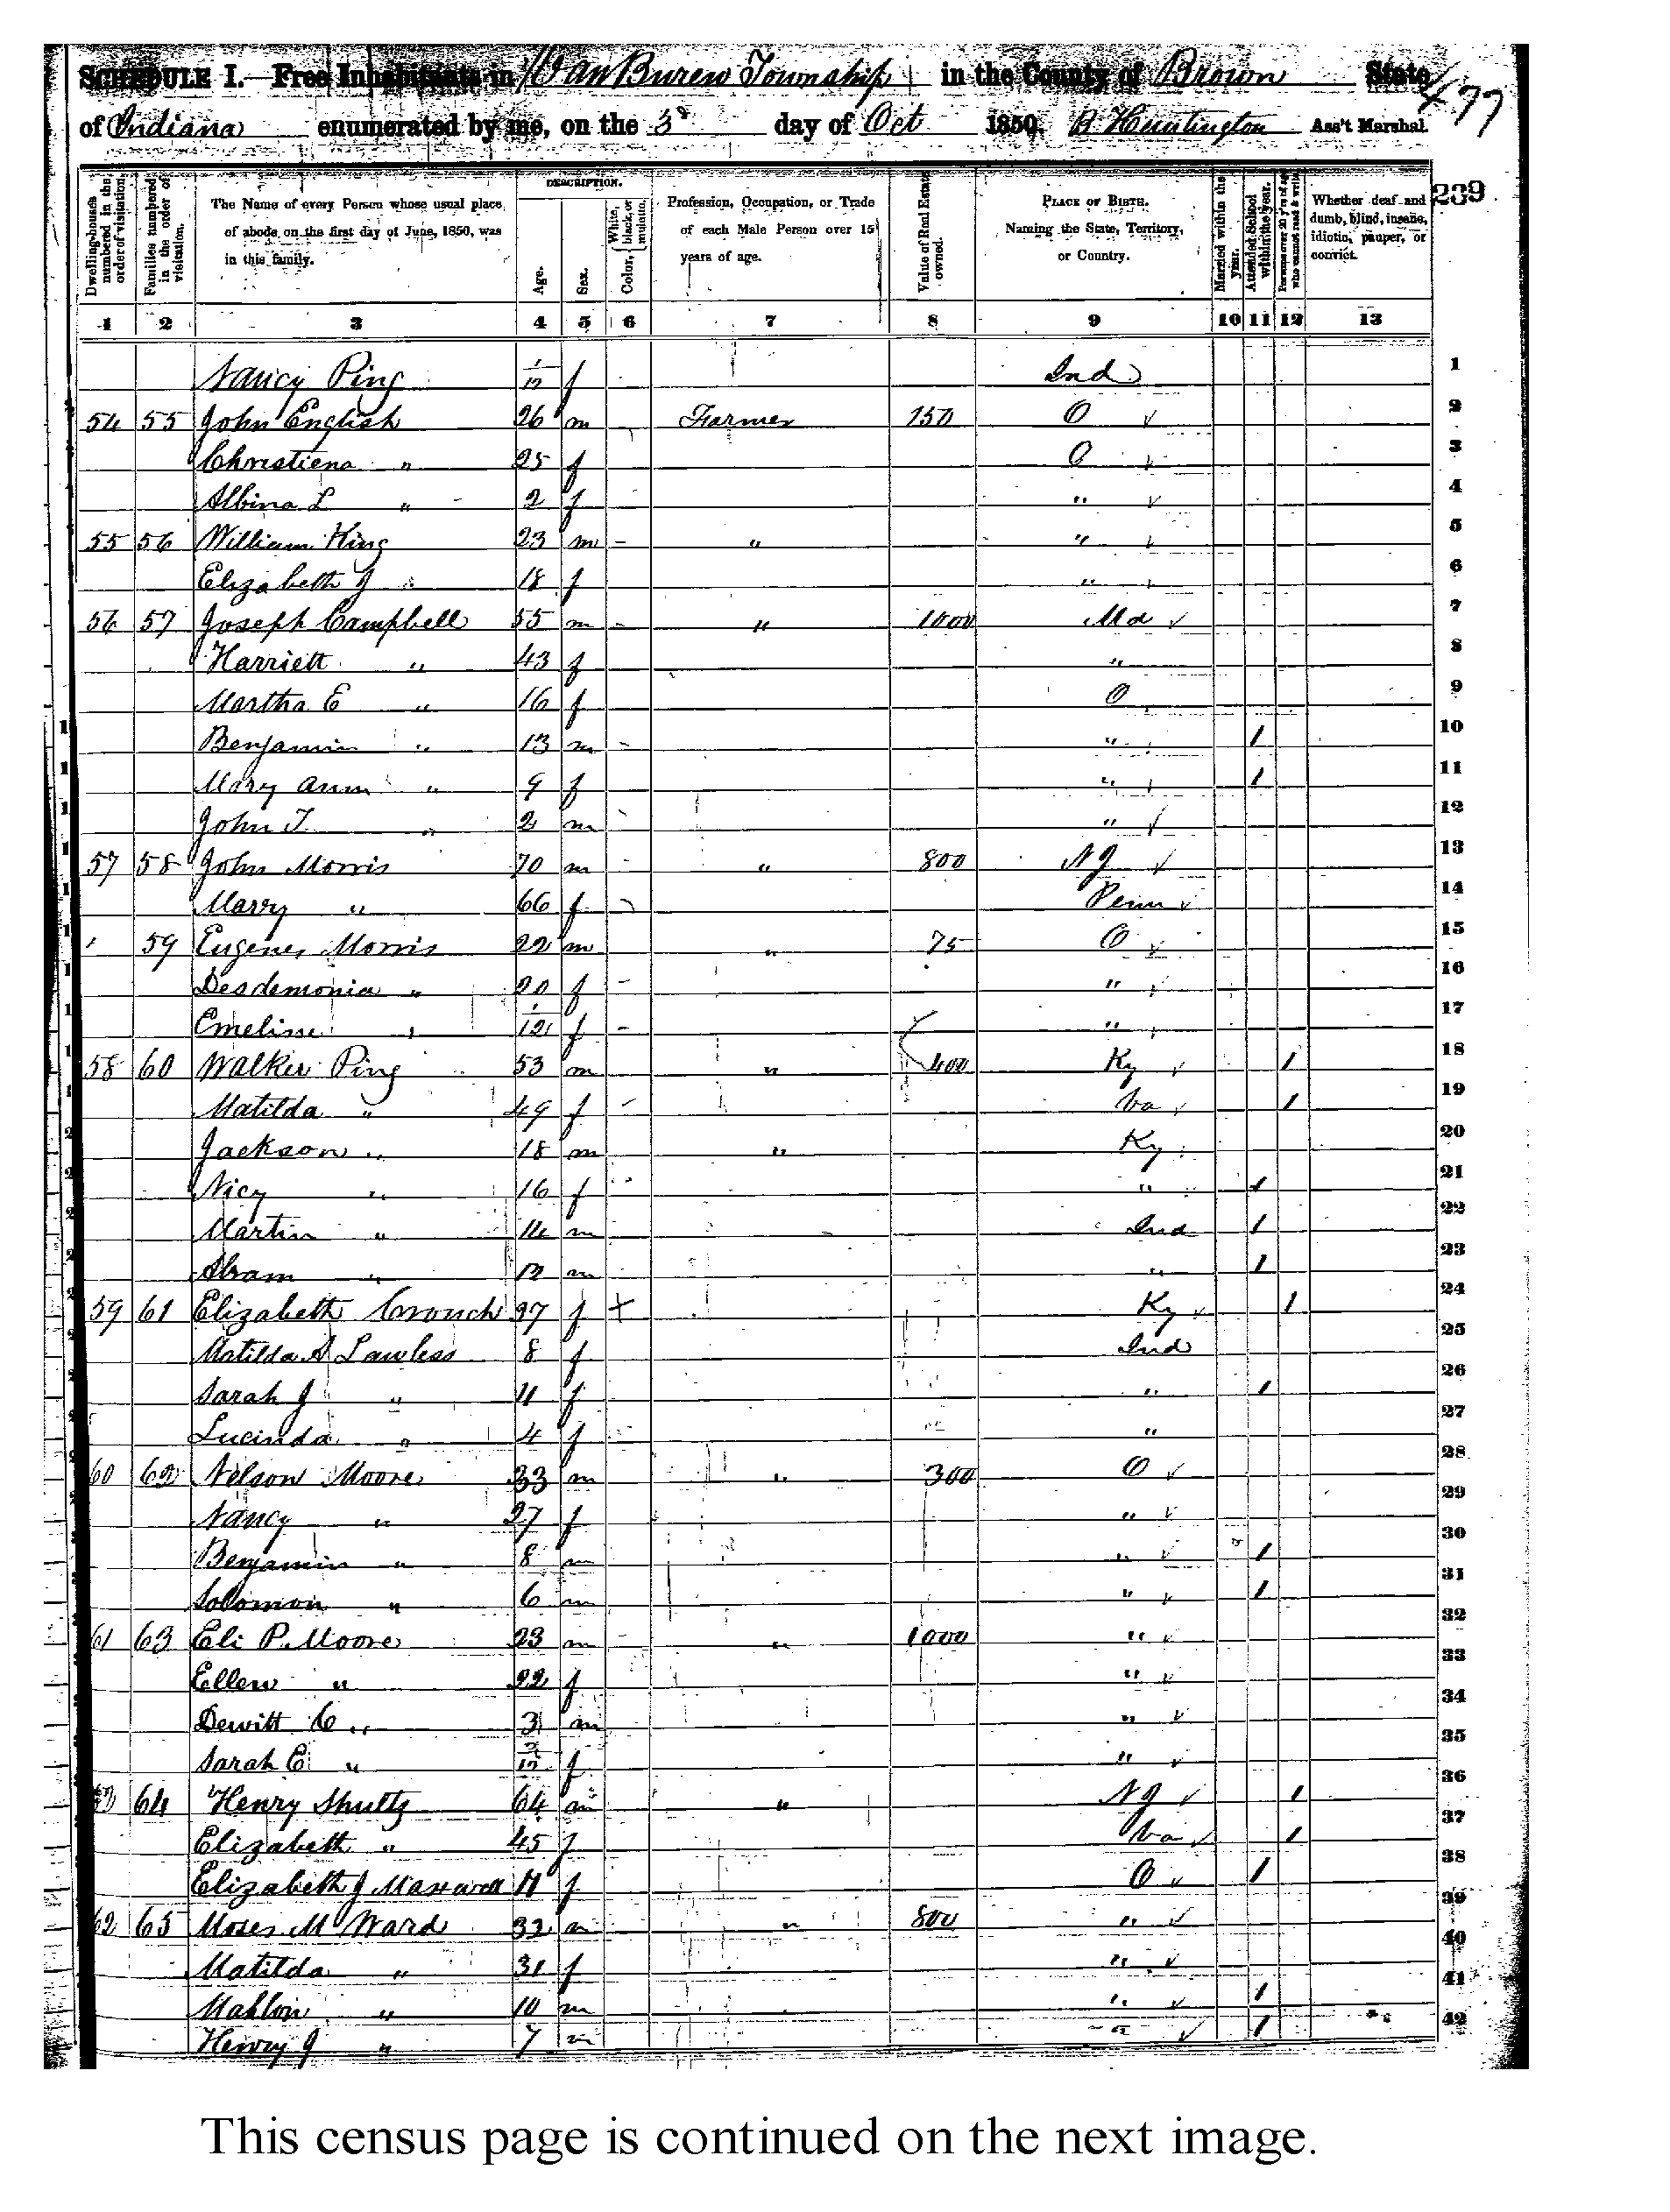 SCHEDULE I. Free Inhabitants in Van Buren Township in the County of Brown State
of Indiana enumerated by me, on the 3d day of Oct 1850. B. Huntington Ass't Marshal.
477
239
Dwelling-houses numbered in the order of visitation.
Families numbered in the order of visitation.
The Name of every Person whose usual place of abode on the first day of June, 1850, was in this family.
DESCRIPTION.
Age.
Sex.
Color, White, black, or mulatto.
Profession, Occupation, or Trade of each Male Person over 15 years of age.
Value of Real Estate owned.
PLACE OF BIRTH. Naming the State, Territory, or Country.
Married within the year.
Attended School within the year.
Persons over 20 y'rs of age who cannot read & write.
Whether deaf and dumb, blind, insane, idiotic, pauper, or convict.
1 2 3 4 5 6 7 8 9 10 11 12 13
Nancy Ping 1/12 f Ind 1
54 55 John English 26 m Farmer 150 O 2
Christiena " 25 f O 3
Albina L " 2 f " 4
55 56 William King 23 m " " 5
Elizabeth J " 18 f " 6
56 57 Joseph Campbell 55 m " 1000 Md 7
Harriett " 43 f " 8
Martha E " 16 f O 9
Benjamin " 13 m " 1 10
Mary Ann " 9 f " 1 11
John T " 2 m " 12
57 58 John Morris 70 m " 800 NJ 13
Marry " 66 f Penn 14
" 59 Eugene Morris 22 m " 75 O 15
Desdemonia " 20 f " 16
Emeline " 1/12 f " 17
58 60 Walker Ping 53 m " 400 Ky 1 18
Matilda " 49 f Va 1 19
Jackson " 18 m " Ky 20
Nicy " 16 f " 1 21
Martin " 14 m Ind 1 22
Abram " 12 m " 1 23
59 61 Elizabeth Crouch 37 f + Ky 1 24
Matilda A Lawless 8 f Ind 25
Sarah J " 11 f " 1 26
Lucinda " 4 f " 27
60 62 Nelson Moore 33 m " 300 O 28
Nancy " 27 f " 29
Benjamin " 8 m " 1 30
Solomon " 6 m " 1 31
61 63 Eli P. Moore 23 m " 1000 " 32
Ellen " 22 f " 33
Dewitt C " 3 m " 34
Sarah E " 3/12 f " 35
64 Henry Shultz 64 m " NJ 1 36
Elizabeth " 45 f Va 1 37
Elizabeth J Maxwell 11 f O 1 38
62 65 Moses M Ward 32 m " 800 " 39
Matilda " 31 f " 40
Mahlon " 10 m " 1 41
Henry J " 7 m " 1 42
This census page is continued on the next image.